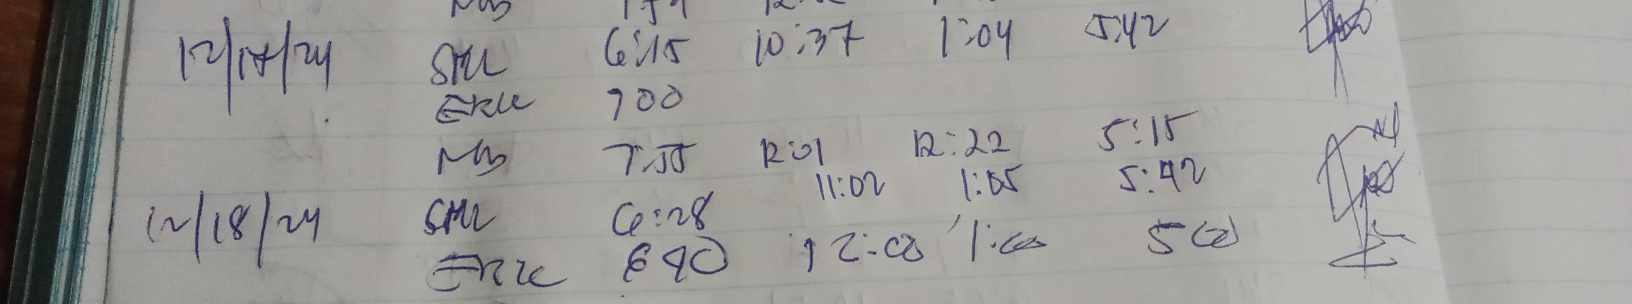 12/17/24 SML 6:15 10:37 1:04 5:42
ERIC 700
MB 7:55 12:01 12:22 5:15
12/18/24 SML 6:28 11:02 1:05 5:42
ERIC 640 12:00 1:00 500